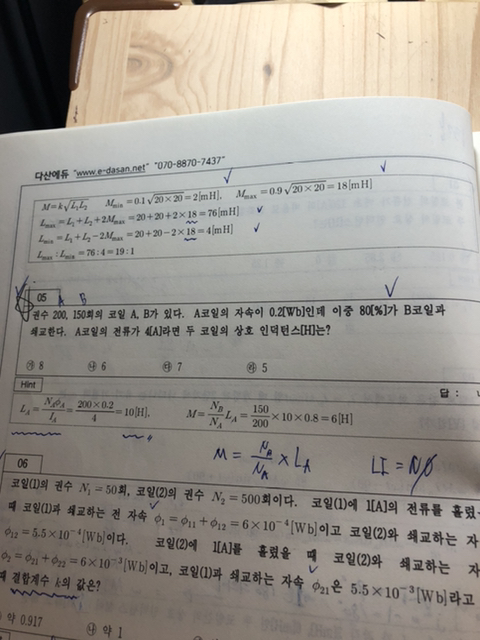 다산에듀 "www.e-dasan.net" "070-8870-7437"
M=k√L₁L₂ M_min=0.1√20×20=2[mH], M_max=0.9√20×20=18[mH]
L_max=L₁+L₂+2M_max=20+20+2×18=76[mH]
L_min=L₁+L₂-2M_max=20+20-2×18=4[mH]
L_max:L_min=76:4=19:1
05 A B
권수 200, 150회의 코일 A, B가 있다. A코일의 자속이 0.2[Wb]인데 이중 80[%]가 B코일과
쇄교한다. A코일의 전류가 4[A]라면 두 코일의 상호 인덕턴스[H]는?
㉮ 8 ㉯ 6 ㉰ 7 ㉱ 5
Hint 답 :
L_A=N_Aφ_A/I_A=200×0.2/4=10[H], M=N_B/N_A L_A=150/200×10×0.8=6[H]
M = N_B/N_A × L_A LI = Nφ
06
코일(1)의 권수 N₁=50회, 코일(2)의 권수 N₂=500회이다. 코일(1)에 1[A]의 전류를 흘렸
때 코일(1)과 쇄교하는 전 자속 φ₁=φ₁₁+φ₁₂=6×10⁻⁴[Wb]이고 코일(2)와 쇄교하는 자
φ₁₂=5.5×10⁻⁴[Wb]이다. 코일(2)에 1[A]를 흘렸을 때 코일(2)와 쇄교하
φ₂=φ₂₁+φ₂₂=6×10⁻³[Wb]이고, 코일(1)과 쇄교하는 자속 φ₂₁은 5.5×10⁻³[Wb]라고
때 결합계수 k의 값은?
약 0.917 ㉯ 약 1